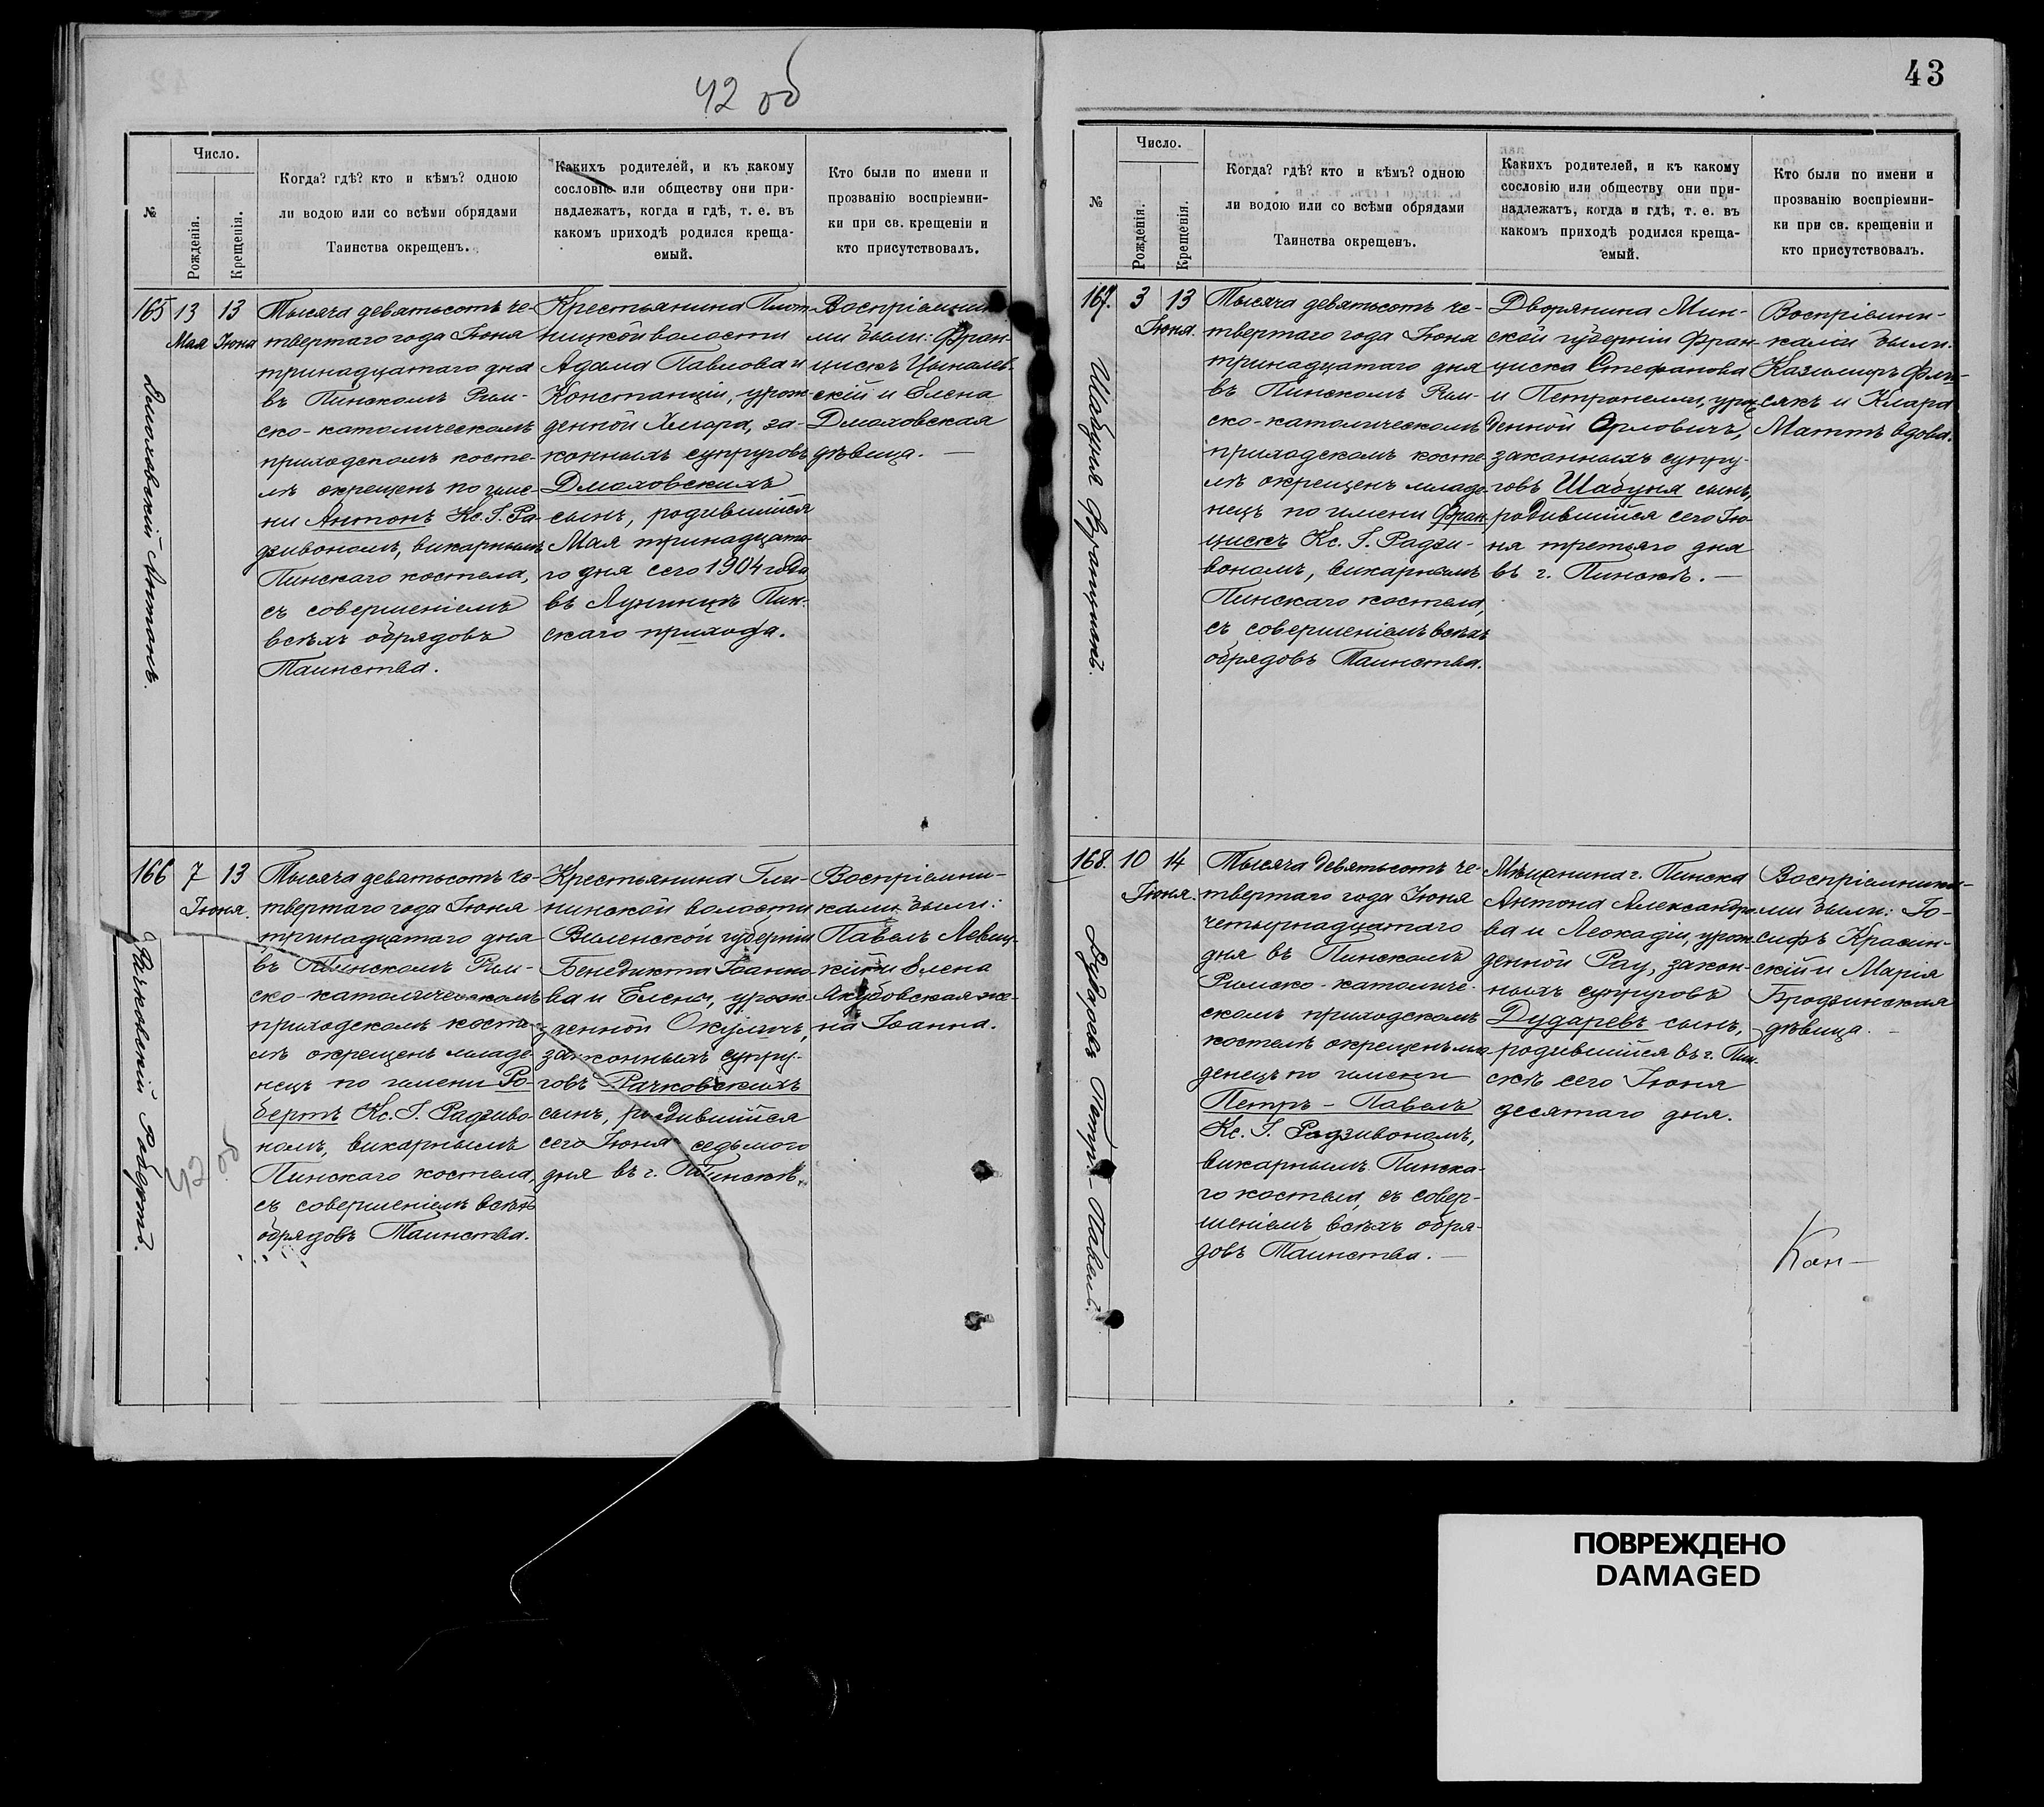 42 об
№
Число.
Рожденія.
Крещенія.
Когда? гдѣ? кто и кѣмъ? одною
ли водою или со всѣми обрядами
Таинства окрещенъ.
Какихъ родителей, и къ какому
сословію или обществу они при-
надлежатъ, когда и гдѣ, т. е. въ
какомъ приходѣ родился креща-
емый.
Кто были по имени и
прозванію воспріемни-
ки при св. крещеніи и
кто присутствовалъ.
165
13
Мая
13
Іюня
Дмоховскій Антонъ.
Тысяча девятьсотъ че-
твертаго года Іюня
тринадцатаго дня
въ Пинскомъ Рим-
ско-католическомъ
приходскомъ косте-
лѣ окрещенъ по име-
ни Антонъ Кс. І. Ра-
дзивономъ, викарнымъ
Пинскаго костела,
съ совершеніемъ
всѣхъ обрядовъ
Таинства.
Крестьянина Плот-
ницкой волости
Адама Павлова и
Констанціи, урож-
денной Хмара, за-
конныхъ супруговъ
Дмоховскихъ
сынъ, родившійся
Мая тринадцата-
го дня сего 1904 года
въ Лунинцѣ Пин-
скаго прихода.
Воспріемника-
ми были: Фран-
цискъ
скій и Елена
Дмоховская
дѣвица. —
166
7
13
Іюня.
Рачковскій Робертъ.
42 об
Тысяча девятьсотъ че-
твертаго года Іюня
тринадцатаго дня
въ Пинскомъ Рим-
ско-католическомъ
приходскомъ косте-
лѣ окрещенъ младе-
нецъ по имени Ро-
бертъ Кс. І. Радзиво-
номъ, викарнымъ
Пинскаго костела,
съ совершеніемъ всѣхъ
обрядовъ Таинства.
Крестьянина Гли-
нинской волости
Виленской губерніи
Бенедикта Іоанно-
ва и Елены, урож-
денной Окуличъ,
законныхъ супру-
говъ Рачковскихъ
сынъ, родившійся
сего Іюня седьмого
дня въ г. Пинскѣ.
Воспріемни-
ками были:
Павелъ Левиц-
кій и Елена
Якубовская же-
на Іоанна.
43
№
Число.
Рожденія.
Крещенія.
Когда? гдѣ? кто и кѣмъ? одною
ли водою или со всѣми обрядами
Таинства окрещенъ.
Какихъ родителей, и къ какому
сословію или обществу они при-
надлежатъ, когда и гдѣ, т. е. въ
какомъ приходѣ родился креща-
емый.
Кто были по имени и
прозванію воспріемни-
ки при св. крещеніи и
кто присутствовалъ.
167.
3
13
Іюня.
Шабуня Францискъ.
Тысяча девятьсотъ че-
твертаго года Іюня
тринадцатаго дня
въ Пинскомъ Рим-
ско-католическомъ
приходскомъ косте-
лѣ окрещенъ младе-
нецъ по имени Фран-
цискъ Кс. І. Радзи-
вономъ, викарнымъ
Пинскаго костела,
съ совершеніемъ всѣхъ
обрядовъ Таинства.
Дворянина Мин-
ской губерніи Фран-
циска Стефанова
и Петронели, урож-
денной Орловичъ,
законныхъ супру-
говъ Шабуня сынъ,
родившійся сего Ію-
ня третьяго дня
въ г. Пинскѣ. —
Воспріемни-
ками были.
Казимиръ
и Клара
Маттъ вдова.
168.
10
14
Іюня.
Дударевъ Петръ-Павелъ.
Тысяча девятьсотъ че-
твертаго года Іюня
четырнадцатаго
дня въ Пинскомъ
Римско-католиче-
скомъ приходскомъ
костелѣ окрещенъ мла-
денецъ по имени
Петръ-Павелъ
Кс. І. Радзивономъ,
викарнымъ Пинска-
го костела, съ совер-
шеніемъ всѣхъ обря-
довъ Таинства. —
Мѣщанина г. Пинска
Антона Александро-
ва и Леокадіи, урож-
денной Рау, закон-
ныхъ супруговъ
Дударевъ сынъ,
родившійся въ г. Пин-
скѣ сего Іюня
десятаго дня.
Воспріемника-
ми были: Іо-
сифъ Красин-
скій и Марія
Бродзинская
дѣвица. —
ПОВРЕЖДЕНО
DAMAGED